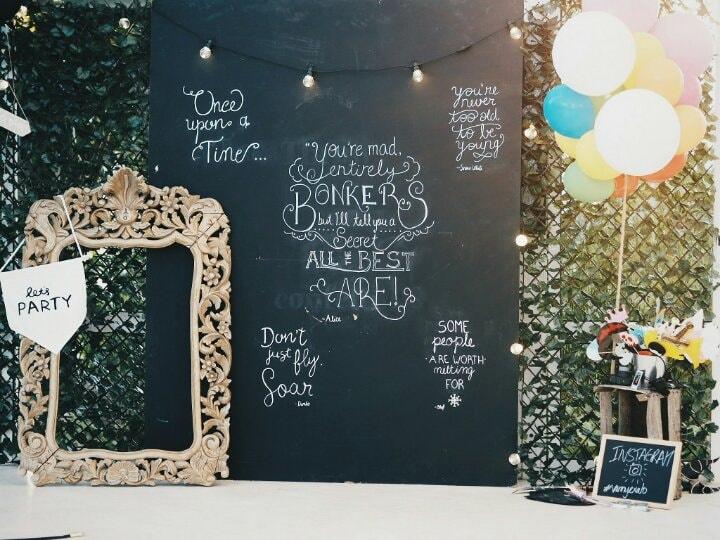 Once
upon a
Time...
"You're mad,
entirely
BONKERS
but I'll tell you a
Secret
ALL THE BEST
ARE!
- Alice
you're
never
too old
to be
young
- Snow White
Don't
just fly.
Soar
- Dumbo
SOME
people
ARE WORTH
melting
FOR
- Olaf
let's
PARTY
INSTAGRAM